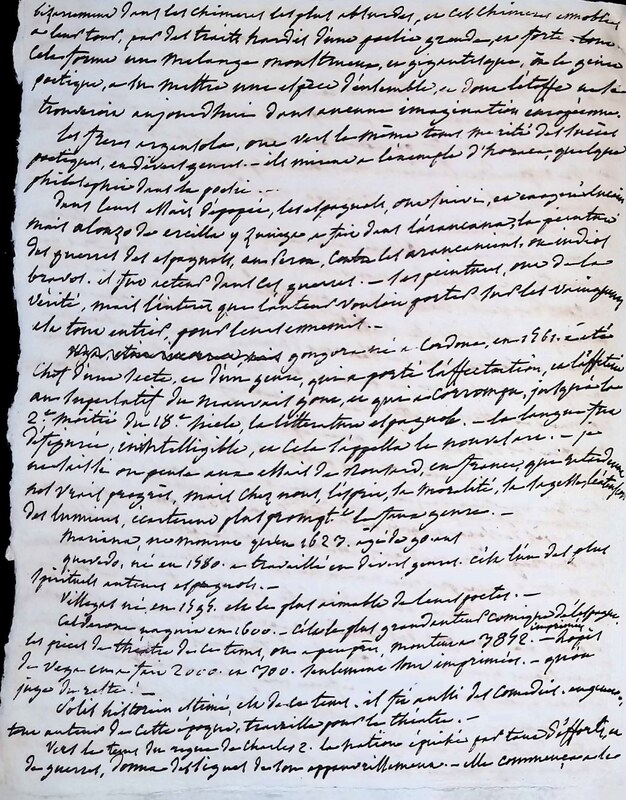 dans les chimeres les plus absurdes, et ces chimeres ennoblies
a leur tour, par des traits hardis d'une poesie grande, et forte. tout
cela forme un melange monstrueux, et gigantesque, où le génie
poetique, a su mettre une espece d'ensemble, et dont l'étoffe ne se
trouveroit aujourdhui dans aucune imagination européenne.
les freres argensola, ont vers le même tems merité des succès
poetiques, en divers genres. - ils mirent a l'exemple d'horace, quelque
philosophie dans la poesie. -
dans leurs essais d'épopée, les espagnols, ont suivi, et exagéré lucain
mais alonzo de ercilla y zuniga a fait dans l'araucana, la peinture
des guerres des espagnols, au perou, contre les araucaniens, ou indios
bravos. il fut acteur dans ces guerres. - les peintures, ont de la
verité, mais l'interet que l'auteur vouloit porter sur les vainqueurs
est tout entier, pour leurs ennemis. -
gongora né a Cordoue, en 1561. a été
chef d'une secte, et d'un genre, qui a porté l'affectation, et
au superlatif du mauvais gout, et qui a corrompu, jusques a la
2e. moitié du 18e. siecle, la litterature espagnole. - la langue fut
defigurée, inintelligible, et cela s'appella le nouvel art. - je
on pense aux essais de Ronsard, en france, qui
nos vrais progrès, mais chez nous, l'esprit, la moralité, la sagesse,
des lumieres, ecarterent plus prompt.t ce faux genre. -
mariana, ne mourut qu'en 1623. agé de 90 ans
quevedo, né en 1580. a travaillé en divers genres. c'est l'un des plus
spirituels auteurs espagnols. -
Villegas né en 1595. est le plus aimable de leurs poetes. -
Calderone naquit en 1600. - c'est le plus grand auteur comique de l'espagne.
les pieces de théatre de ce tems, ou a peu près, montent a 3852 imprimées - Lopès
de Vega en a fait 2000. et 300. seulement sont imprimées. - qu'on
juge du reste. -
Solis historien estimé, est de ce tems. il fit aussi des comedies.
tout auteur de cette époque, travailla pour le théatre. -
Vers le tems du regne de Charles 2. la nation épuisée par tant d'efforts, et
de guerres, donna des signes de son appauvrissement. - elle commença a les